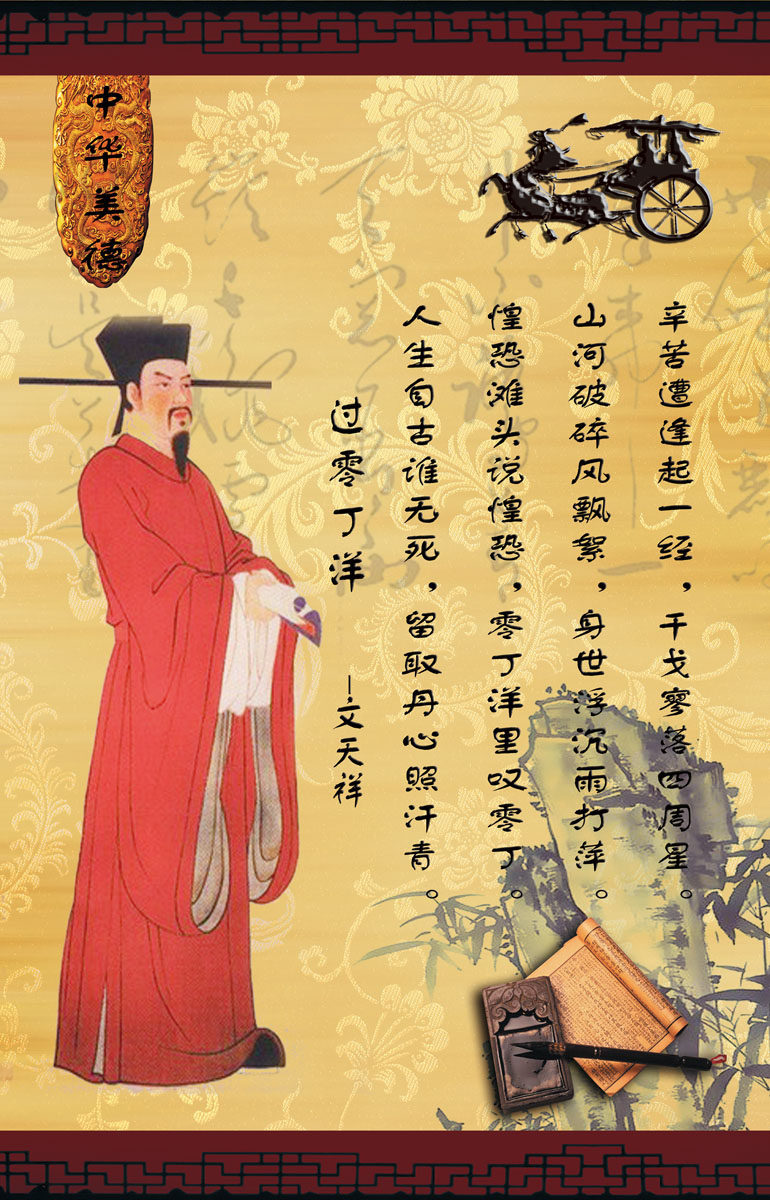 中华美德
辛苦遭逢起一经，干戈寥落四周星。
山河破碎风飘絮，身世浮沉雨打萍。
惶恐滩头说惶恐，零丁洋里叹零丁。
人生自古谁无死，留取丹心照汗青。
过零丁洋
—文天祥